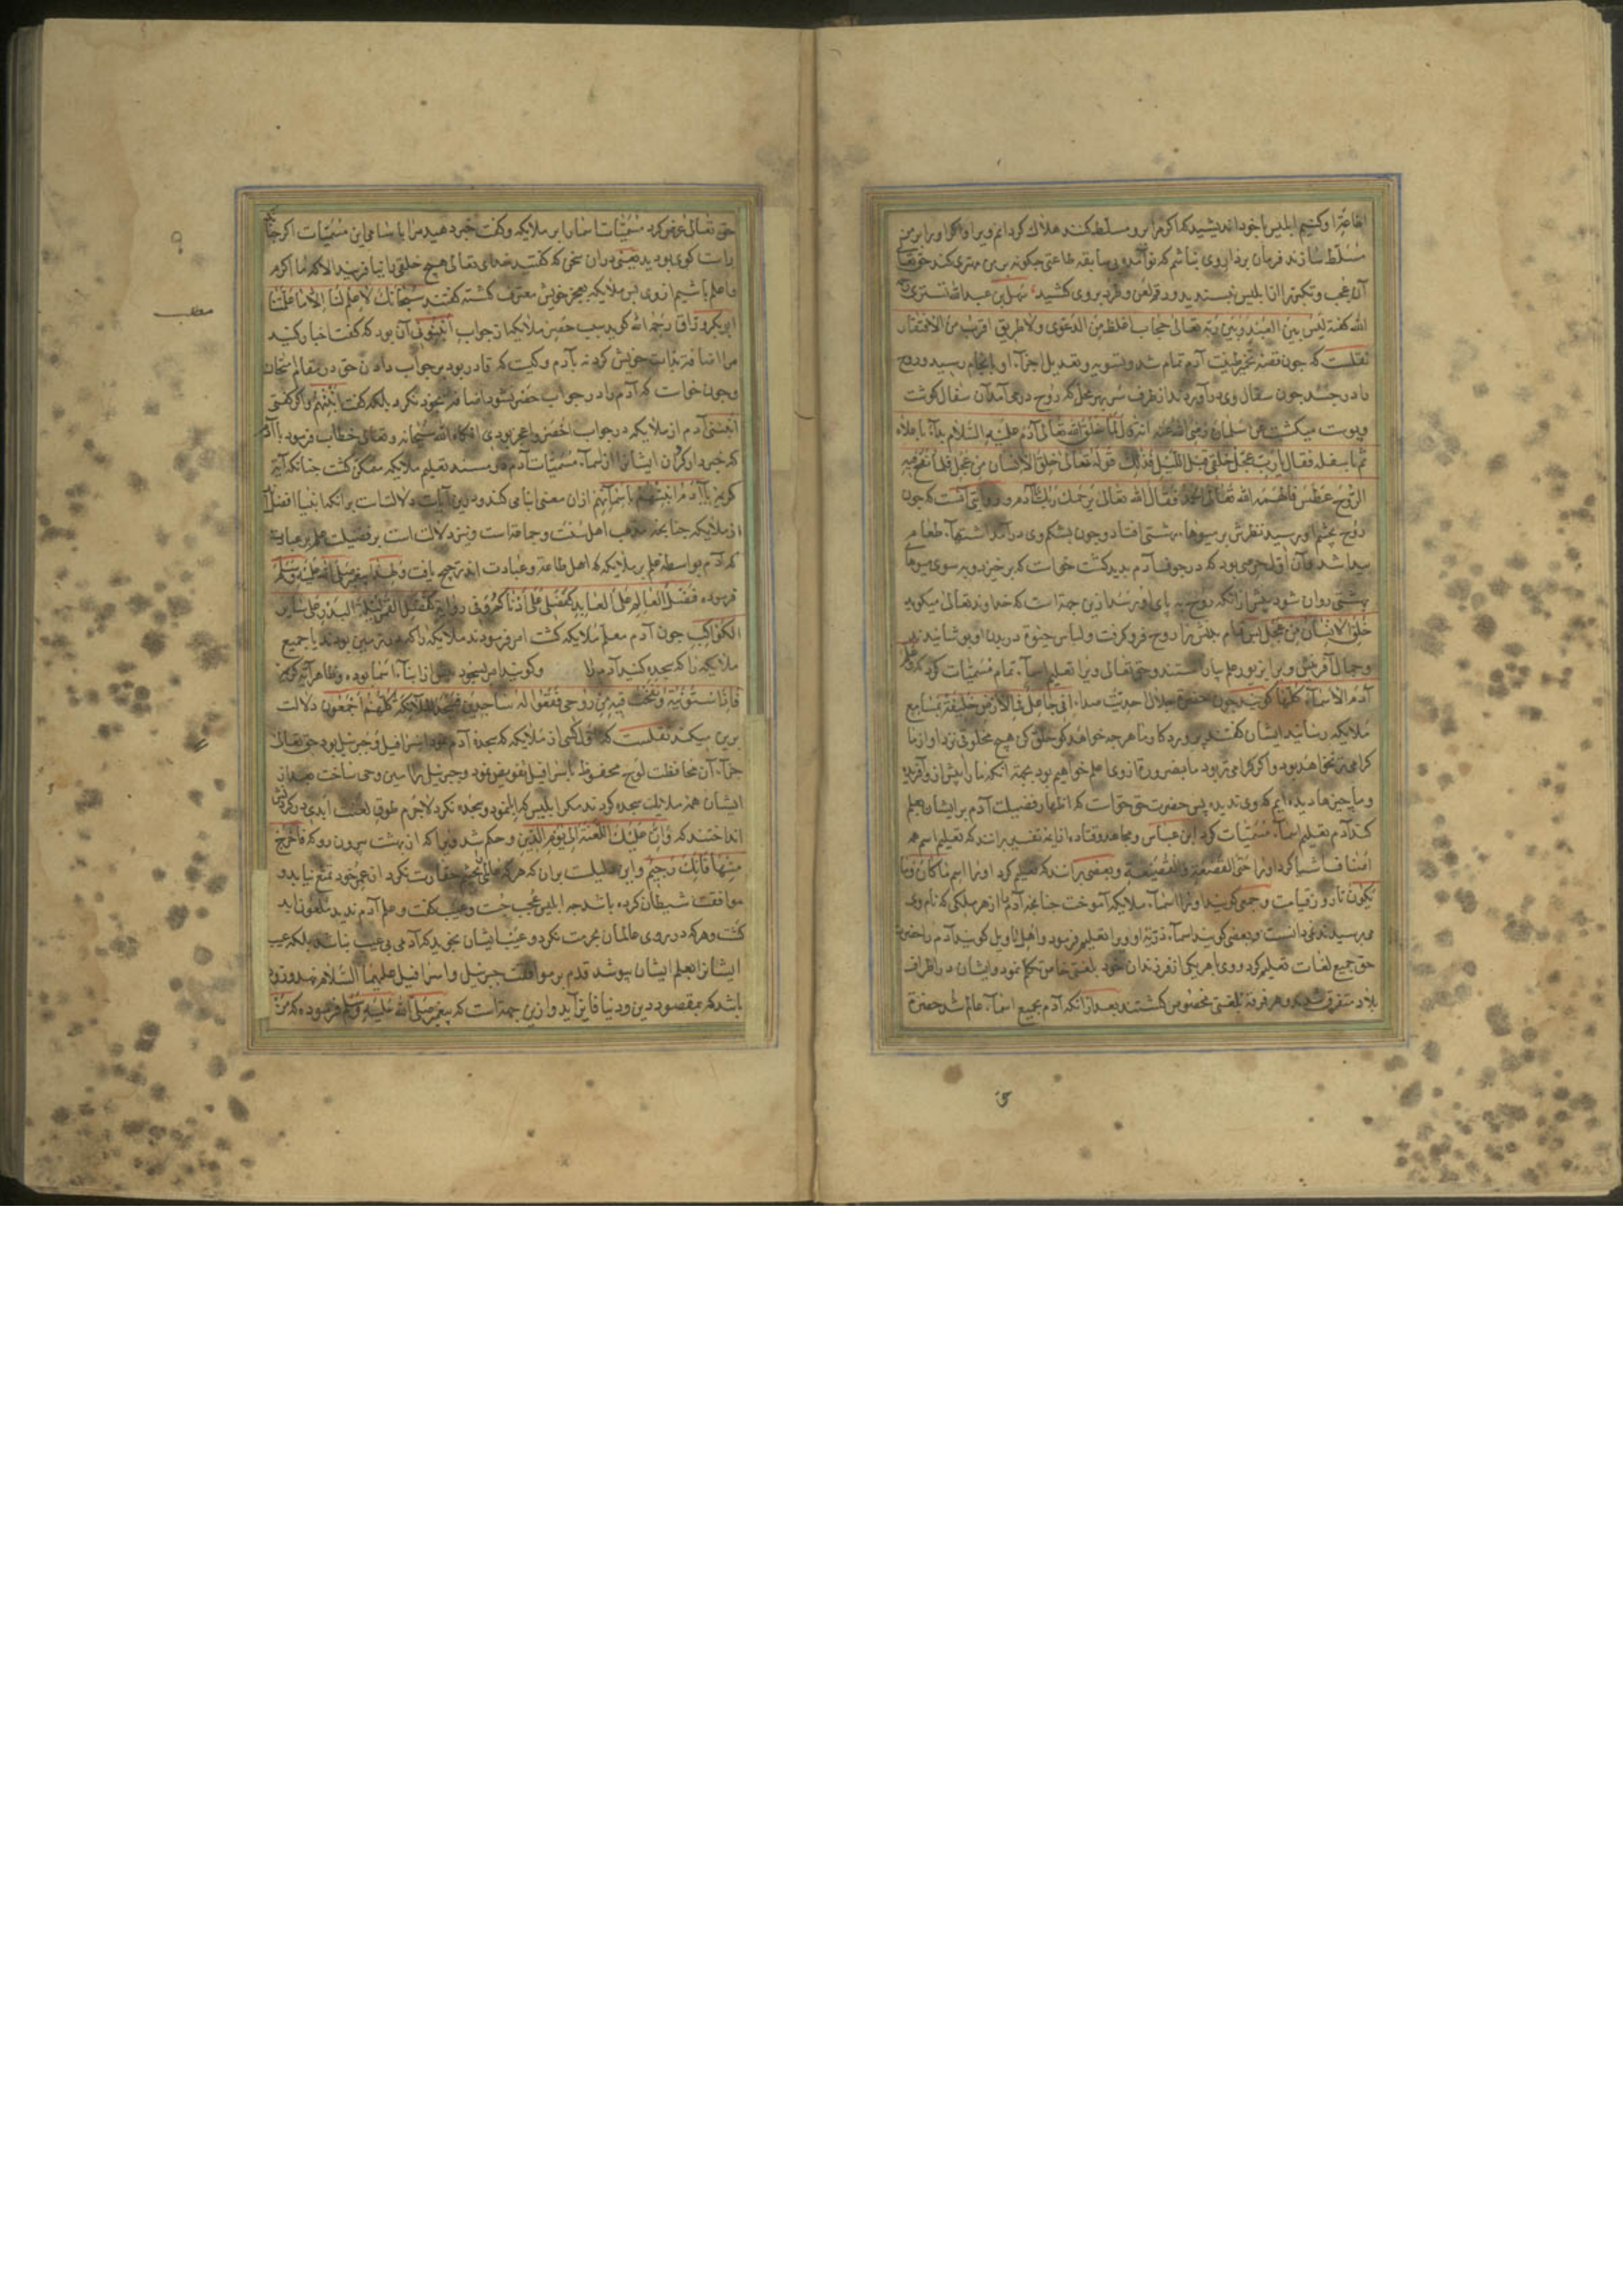 مسلط سازند فرمان بردار وی نباشم که نوآمده بی سابقه طاعتی چکونه بر من مهتری کند حق تعالی
آن عجب و تکبر را از ابلیس نپسندید ورد قم لعن و طرد بر وی کشید سهل بن عبدالله تستری رحمه
الله کفته لیس بین العبد و بین ربه تعالی حجاب اغلظ من الدعوی ولا طریق اقرب من الافتقار
نقلست که جون قصه تخمیر طینت آدم تمام شد و تسویه و تعدیل اجزآء او بانجام رسید و روح
را در جسد جون سفال وی در آوردند از طرف سر بهر محل که روح در می آمد آن سفال کوشت
و پوست میکشت عن سلمان رضی الله عنه انه قال لما خلق الله تعالی آدم علیه السلام بدأ باعلاه
ثم باسفله فقال یا رب عجل خلقی قبل اللیل فذلک قوله تعالی خلق الانسان من عجل فلما نفخ فیه
الروح عطس فالهمه الله تعالی الحمد فقال الله تعالی یرحمک ربک یا آدم و روایتی آنست که جون
روح بچشم او رسید نظرش بر میوهاء بهشتی افتاد و جون بشکم وی در آمد اشتهاء طعام
پیدا شد و آن اول حرصی بود که در جوف آدم بدید کشت خواست که برخیزد و به سوی میوهای
بهشتی روان شود پیش از انکه روح به پای او برسد ازین جهة است که خداوند تعالی میکوید
خلق الانسان من عجل پس تمام بدنش را روح فرو کرفت و لباس حیوة در بدن او پوشانیدند
و جمال آفرینش ویرا بزیور علم بیاراستند و حق تعالی ویرا تعلیم اسمآء تمام مسمیات کرد که وعلم
آدم الاسمآء کلها کویند جون حضرة جلال احدیت صداء انی جاعل فی الارض خلیفة بمسامع
ملایکه رسانید ایشان کفتند پروردکار ما هر چه خواهد کو خلق کن هیچ مخلوقی نزد او از ما
کرامی تر نخواهد بود و اکر کرامی تر بود ما بضرورة از وی اعلم خواهیم بود بجهة آنکه ما را پیش از و آفریده
و ما چیزها دیده ایم که وی ندیده پس حضرت حق خواست که اظهار فضیلت آدم بر ایشان بعلم
کند آدم را تعلیم اسمآء مسمیات کرد ابن عباس و مجاهد و قتاده از ایمه تفسیر برانند که تعلیم اسم همه
اصناف اشیا کرد او را حتی القصعة و القصیعة و بعضی برانند که تعلیم کرد او را اسم ما کان و ما
یکون تا روز قیامت و جمعی کویند او را اسمآء ملایکه آموخت جنانجه آدم را از هر ملکی که نام وی
می پرسیدند می دانست و بعضی کویند اسمآء ذریة او او را تعلیم فرمود و اهل تاویل کویند آدم را حضرت
حق جمیع لغات تعلیم کرد و وی با هر یکی از فرزندان خود بلغتی خاص تکلم نمود و ایشان در اطراف
بلاد متفرق شدند و هر فرقة بلغتی مخصوص کشتند بعد از انکه آدم بجمیع اسمآء عالم شد حضرة
حق تعالی عرض کرد مسمیات اسما را بر ملایکه و کفت خبر دهید مرا با سامی این مسمیات اکر جنانکه
راست کوی بودید یعنی در ان سخن که کفتید خدای تعالی هیچ خلقی را نیافریند الا که ما اکرم
و اعلم باشیم از وی پس ملایکه بعجز خویش معترف کشته کفتند سبحانک لا علم لنا الا ما علمتنا
که خبردار کردان ایشانرا از اسمآء مسمیات آدم در مسند تعلیم ملایکه متمکن کشت جنانکه آیة
کریمه یا آدم انبئهم باسمآئهم ازان معنی انبا می کند و درین آیات دلالتست برانکه انبیا افضل اند
از ملایکه جنانجه مذهب اهل سنت و جماعة است و نیز دلالت است بر فضیلت علم بر عبادت
که آدم بواسطه علم بر ملایکه که اهل طاعة و عبادت اند ترجیح یافت و لهذا پیغمبر صلی الله علیه و سلم
فرموده فضل العالم علی العابد کفضلی علی ادناکم و فی روایة کفضل القمر لیلة البدر علی سایر
الکواکب جون آدم معلم ملایکه کشت امر فرمودند ملایکه را که در زمین بودند یا جمیع
ملایکه را که سجده کنید آدم را و کویند امر بسجود پیش از انبآء اسما بوده و ظاهر آیة کریمه
فاذا سویته و نفخت فیه من روحی فقعوا له ساجدین فسجد الملایکة کلهم اجمعون دلالت
برین میکند نقلست که اول کسی از ملایکه که سجده آدم نمود اسرافیل و جبرئیل بود حق تعالی
جزآء آن محافظت لوح محفوظ باسرافیل تفویض نمود و جبرئیل را امین وحی ساخت بعد از
ایشان همه ملائک سجده کردند مکر ابلیس که ابا نمود و سجده نکرد لاجرم طوق لعنت ابدی در کردنش
انداختند که و ان علیک اللعنة الی یوم الدین و حکم شد ویرا که از بهشت بیرون رو که فاخرج
منها فانک رجیم و این دلیلست بران که هر که عالمی بچشم حقارت نکرد از عمر خود تمتع نیابد و
موافقت شیطان کرده باشد جه ابلیس عجب جست و عیب کفت و علم آدم ندید ملعون ابد
کشت و هر که در روی عالمان بحرمت نکرد و عیب ایشان نجوید که آدمی بی عیب نباشد بلکه عیب
ایشانرا بعلم ایشان بپوشد قدم بر موافقت جبرئیل و اسرافیل علیهما السلام نهد و زود
باشد که بمقصود دین و دنیا فایز آید و ازین جهة است که پیغمبر صلی الله علیه و سلم فرموده که من
مطلب
حق